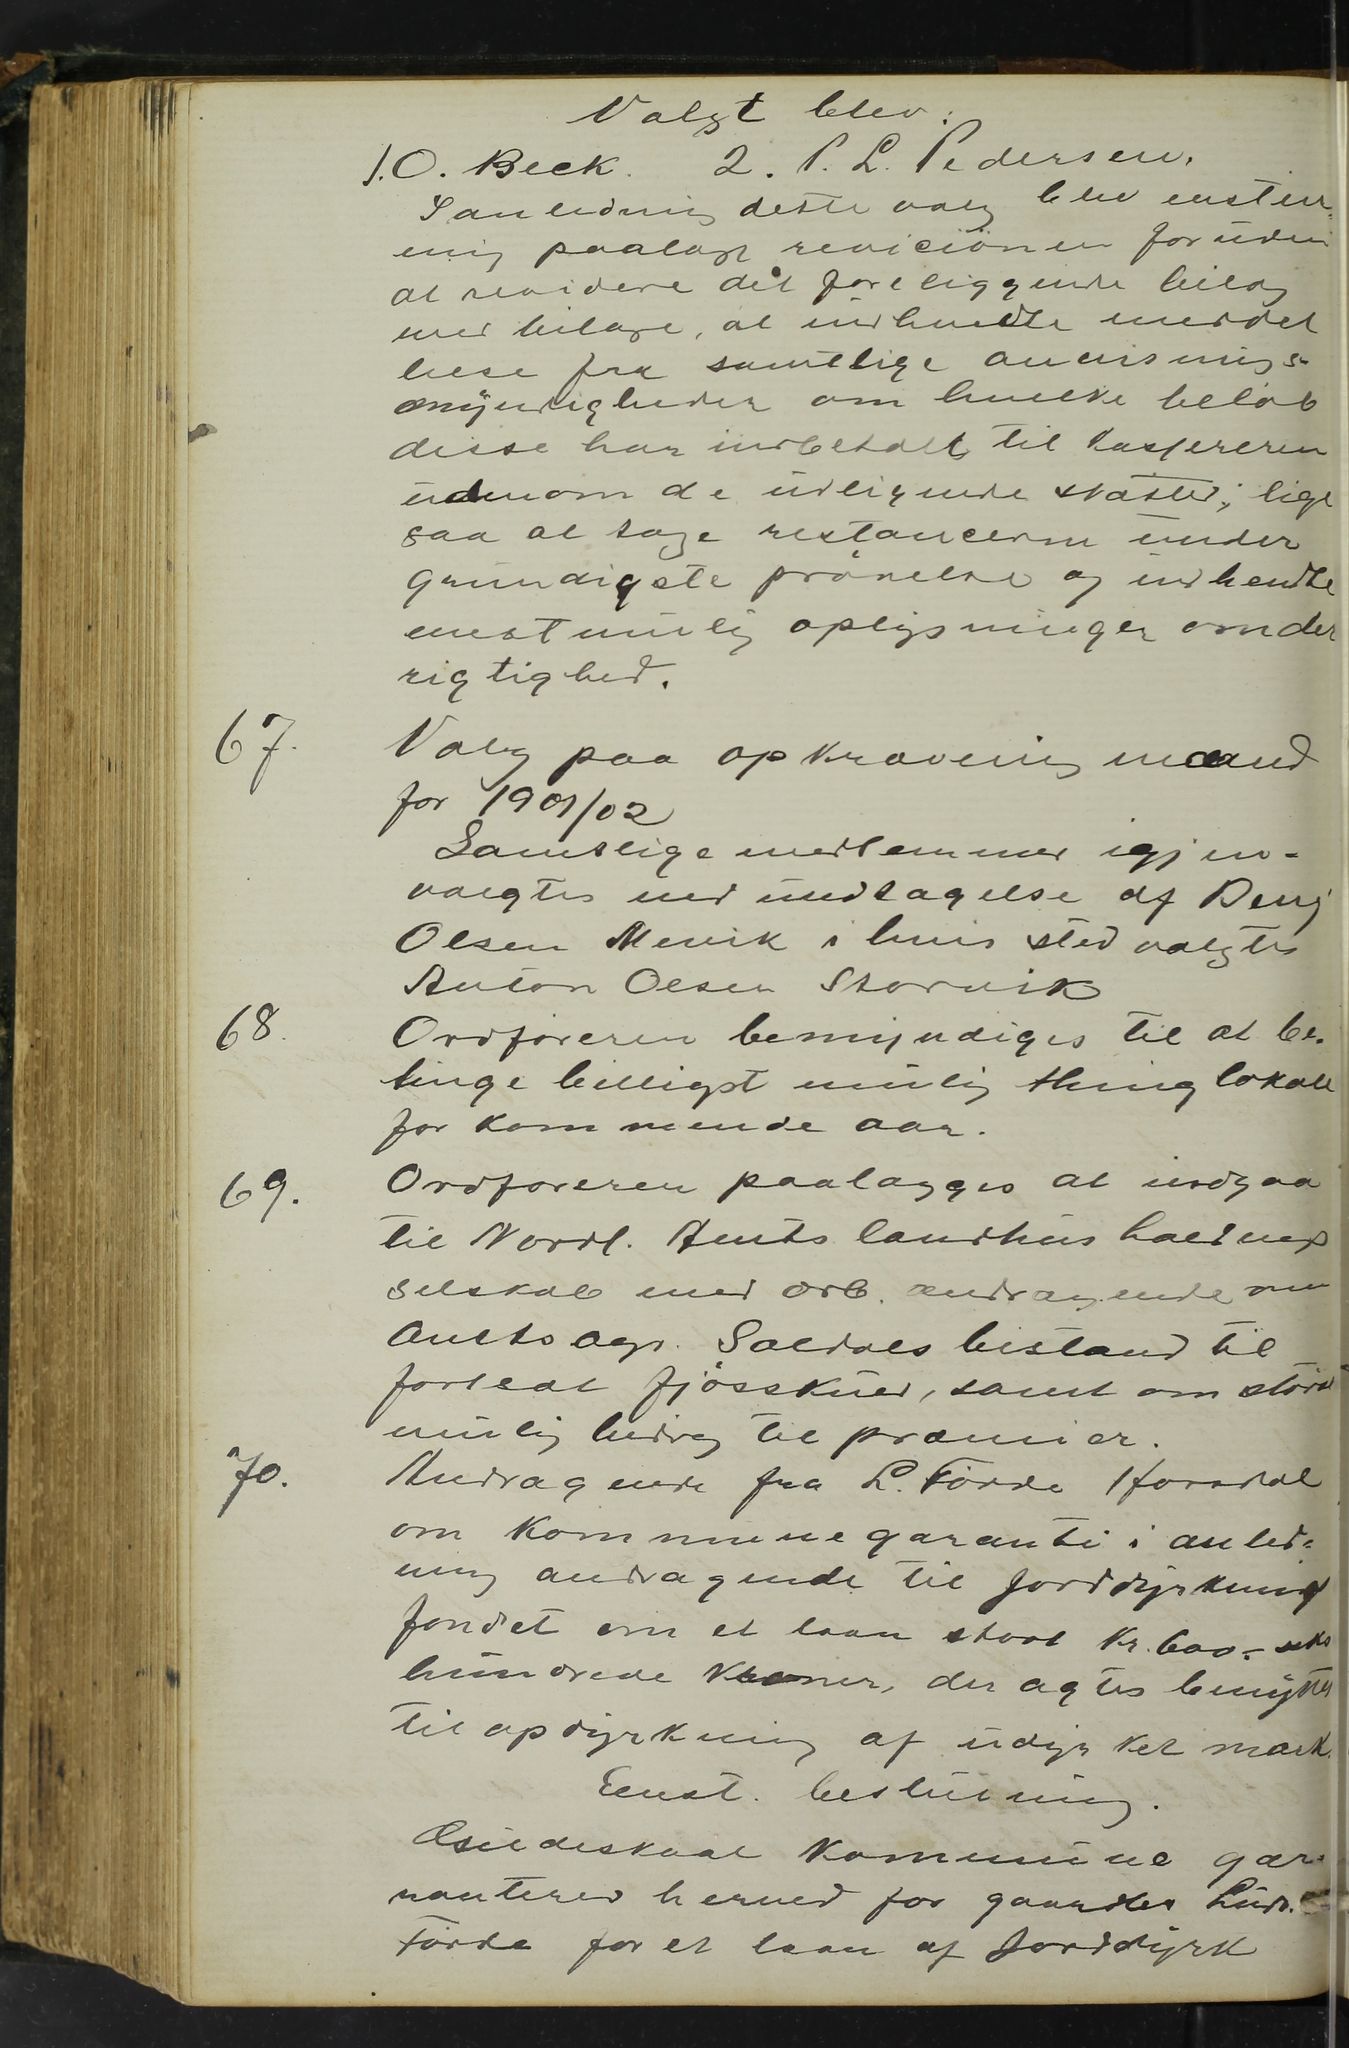 Valgt blev:
1. O. Beck. 2. P. L. Pedersen.
I anledning dette valg blev enstem-
mig paalagt revicionen foruden
at revidere det foreliggende bilag
med bilage, at indhendte meddel
lese fra samtlige anvisnings-
myndigheder om hvilke beløb
disse har indbetalt til kassereren
udenom de udlignede skatter; lige
saa at tage restancerne under
grundigste prøvelse og indhendte
mest mulig oplysninger om der
rigtighed.
67. Valg paa opkrævning mænd
for 1901/02
Samtlige medlemmer igjen-
valgtes med undtagelse af Benj
Olsen Mevik i hvis sted valgtes
Anton Olsen Storvik
68. Ordføreren bemyndiges til at be-
tinge billigst mulig thinglokale
for kommende aar.
69. Ordføreren paalægges at indgaa
til Nordl. Amts landhusholdnings
selskab med ærb. andragende om
Amtsagr. Soldals bistand til
fortsat fjøsskuer, samt om størst
mulig bidrag til præmier.
70. Andragende fra L. Førde Horsdal
om Kommunegaranti i anled-
ning andragende til Jorddyrkning
fondet om et laan stort Kr. 600 - seks
hundrede Kroner, der agtes benyttes
til opdyrkning af udyrket mark.
Eenst. beslutning.
Gildeskaal Kommune gar-
ranterer herved for gaardbr Ludv.
Førde for et laan af Jorddyrk